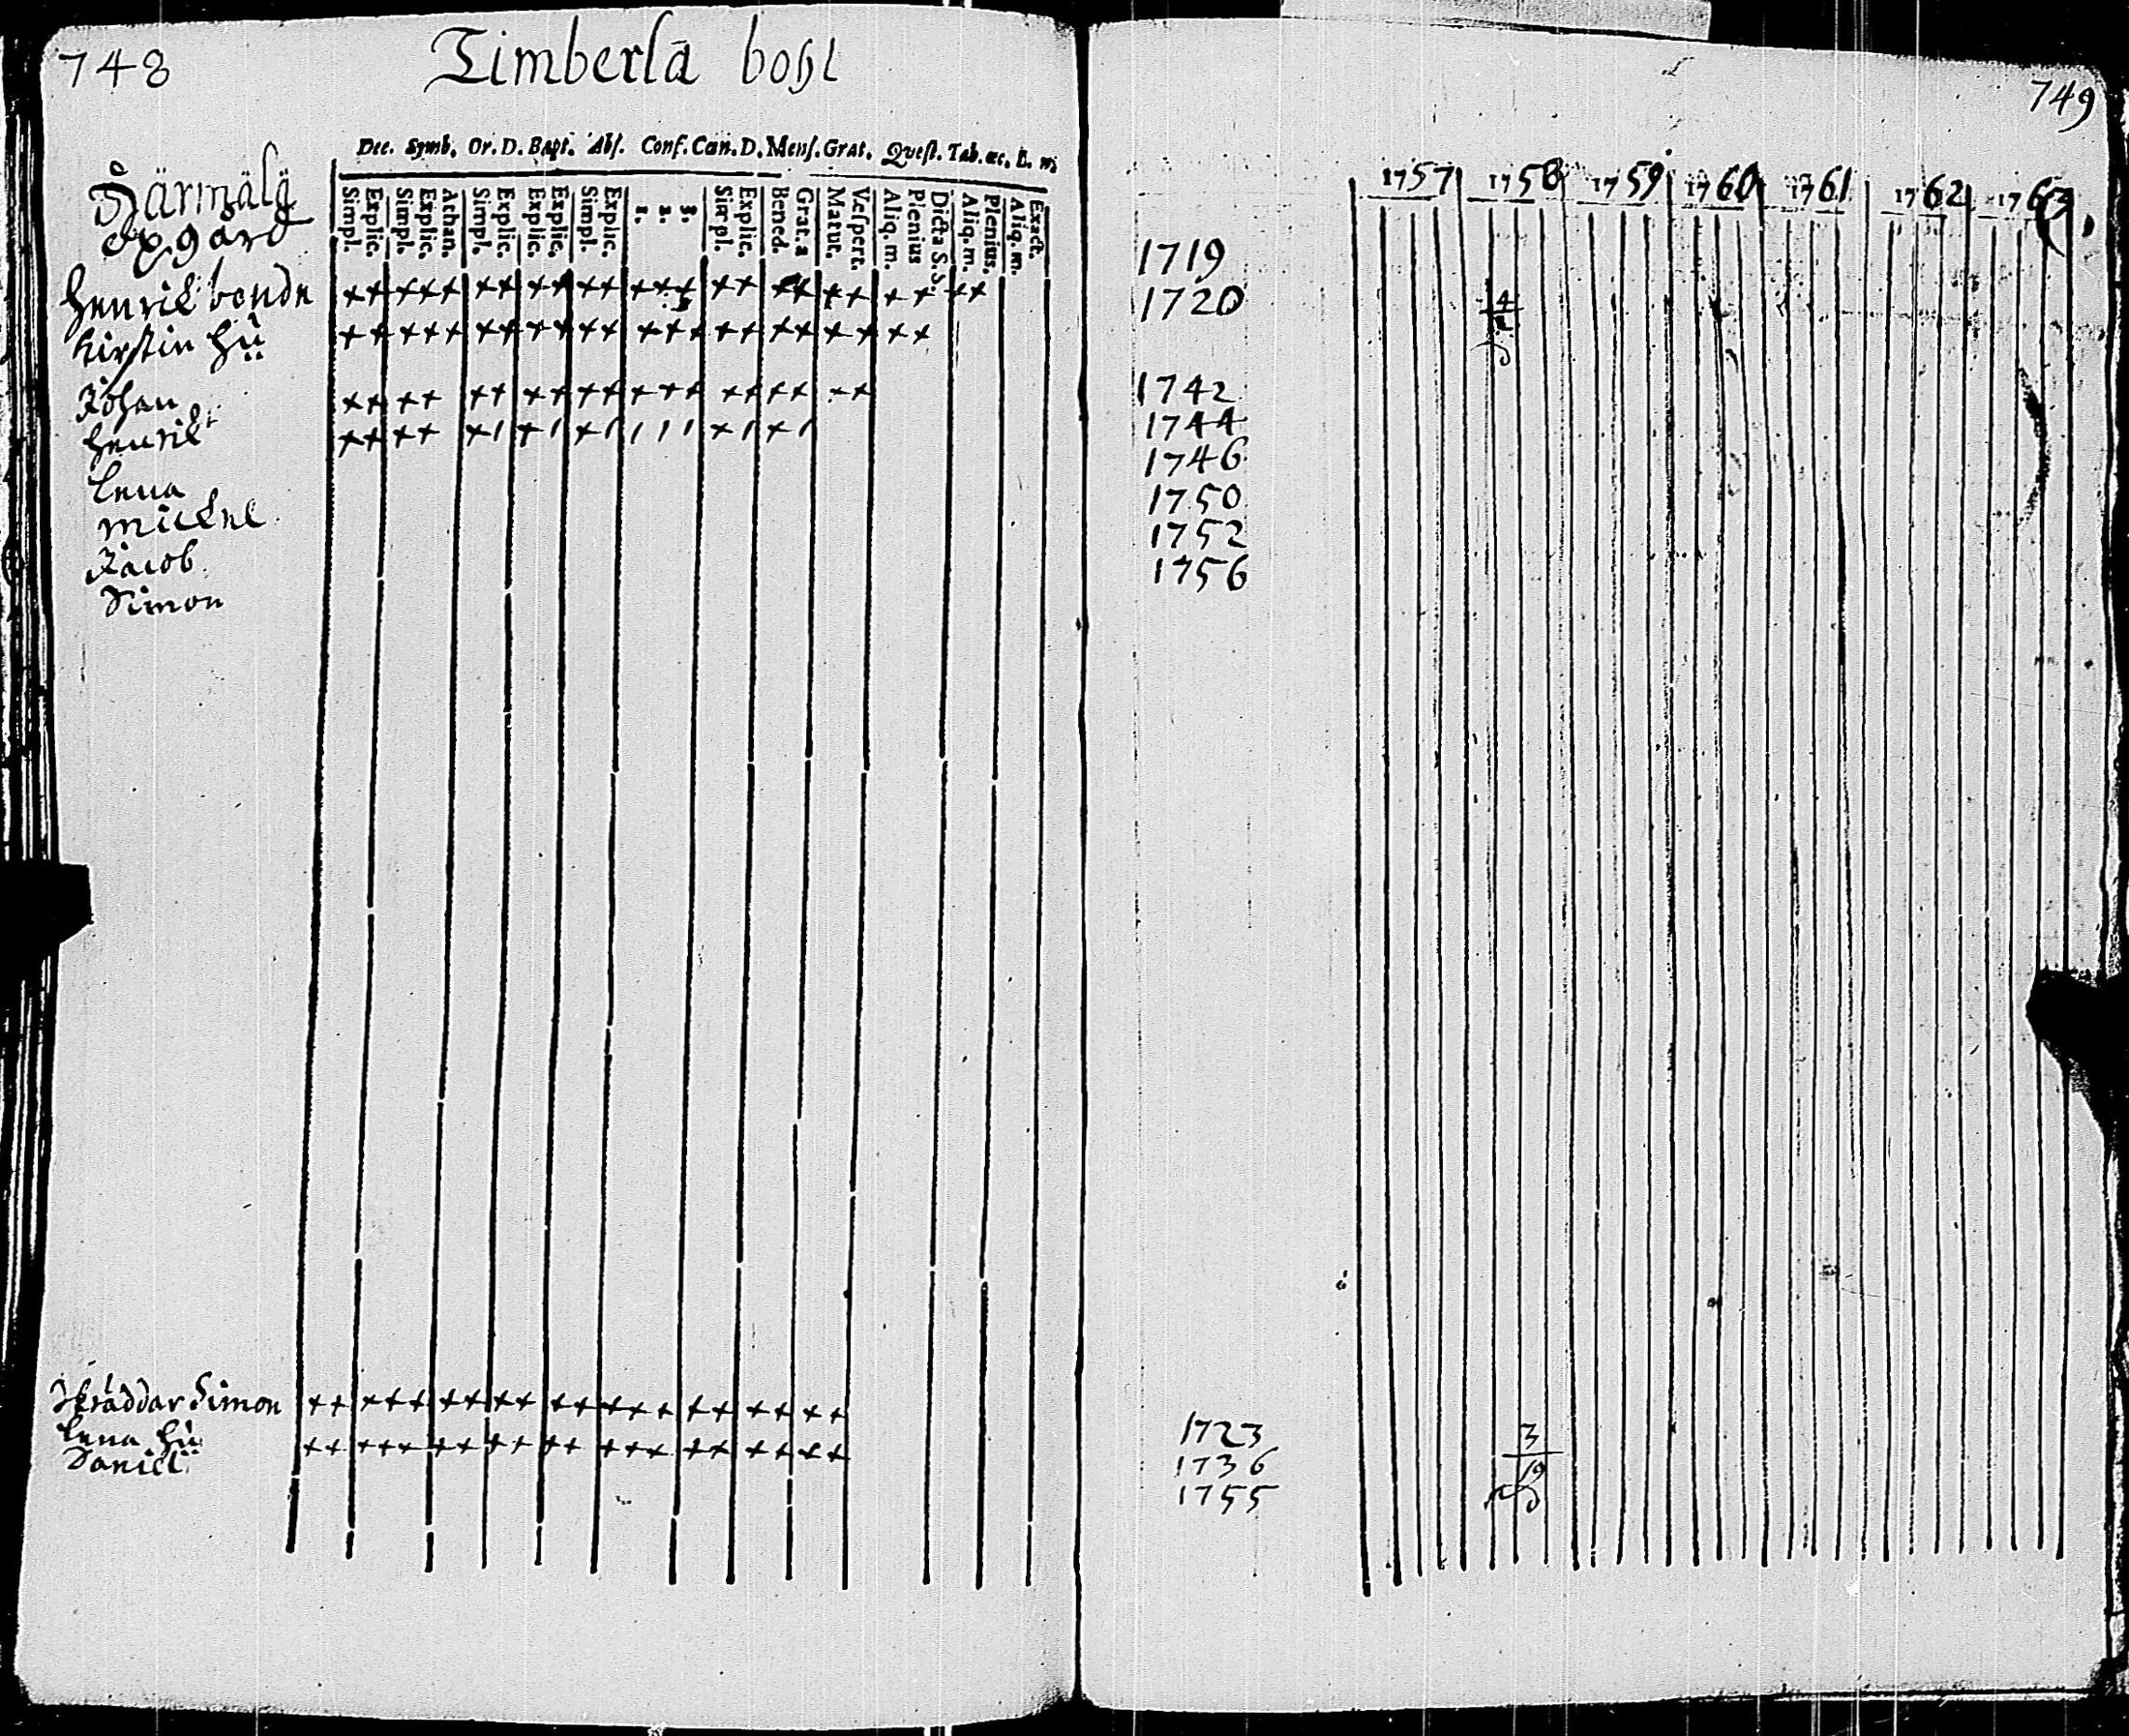 748
Timberlā bohl
Dec. Symb. Or. D. Bapt. Abs. Conf. Cœn. D. Mens. Grat. Quest. Tab. œc.
Simpl. Explic. Simpl. Explic. Athan. Simpl. Explic. Explic. Explic. Simpl. Explic. 1. 2. 3. Simpl. Explic. Bened. Grat. a Matut. Vespert. Aliq. m. Plenius Dicta S. S. Aliq. m. Plenius. Aliq. m. Exact.
Härmälä
Henrik bonde
Kirstin Hu
Johan
Henrik
Lena
Mickel
Jacob
Simon
Skräddar Simon
Lena Hu
Daniel
749
1757 1758 1759 1760 1761 1762 1763
1719
1720
1742
1744
1746
1750
1752
1756
1723 3
1736 19
1755